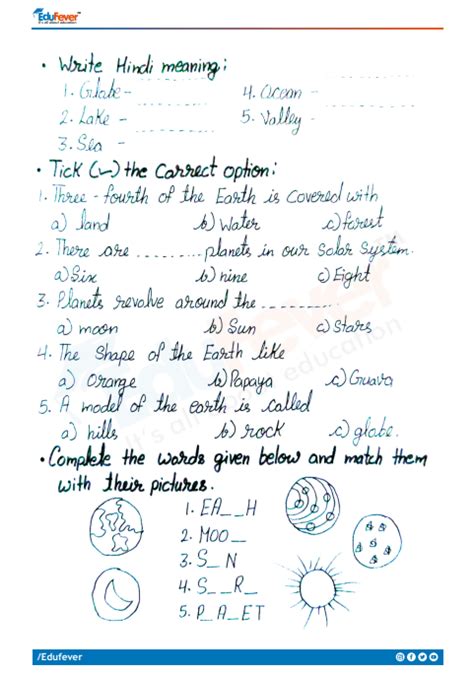 EduFever
It's all about education
• Write Hindi meaning:
1. Glabe -
4. Ocean -
2. Lake -
5. Valley -
3. Sea -
• Tick (✓) the Correct option:
1. Three - fourth of the Earth is Covered with
a) land b) Water c) forest
2. There are .......... planets in our Solar System.
a) Six b) nine c) Eight
3. Planets revolve around the ..........
a) moon b) Sun c) Stars
4. The Shape of the Earth like
a) Orange b) Papaya c) Guava
5. A model of the earth is called
a) hills b) rock c) glabe.
• Complete the words given below and match them
with their pictures.
1. EA__H
2. MOO_
3. S_N
4. S__R_
5. P_A_ET
Edufever
It's all about education
/Edufever